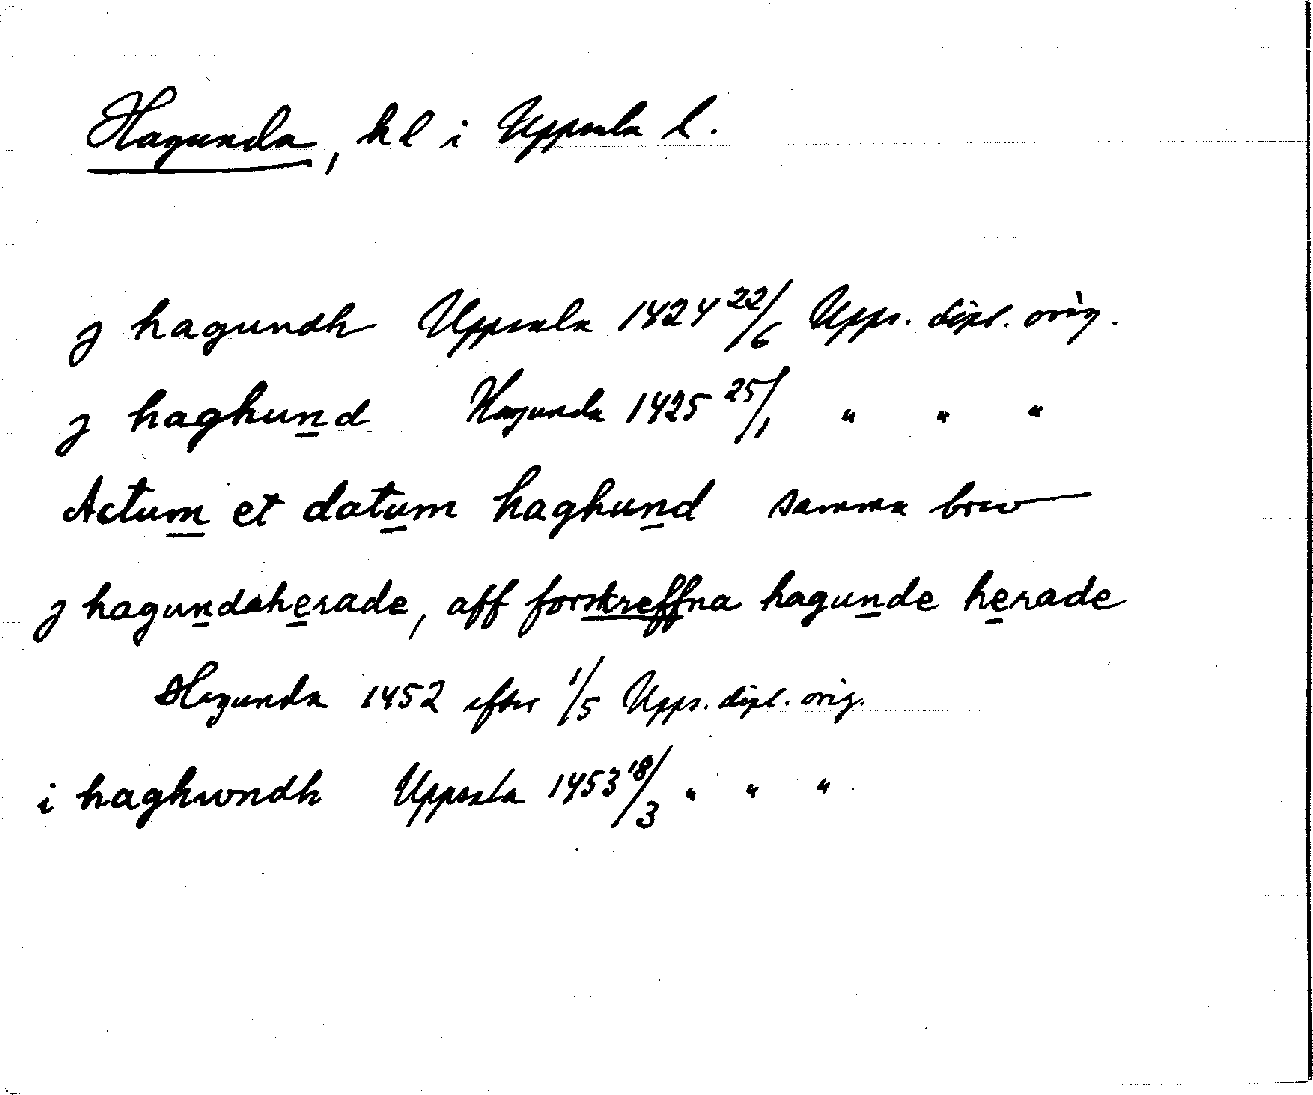 Hagunda, hd i Uppsala l.
j hagundh Uppsala 1424 22/6 Upps. dipl. orig.
j haghund Hagunda 1425 25/1 " " "
Actum et datum haghund samma brev
j hagundaherade, aff forskreffna hagunde herade
Hagunda 1452 efter 1/5 Upps. dipl. orig.
i haghwndh Uppsala 1453 18/3 " " "